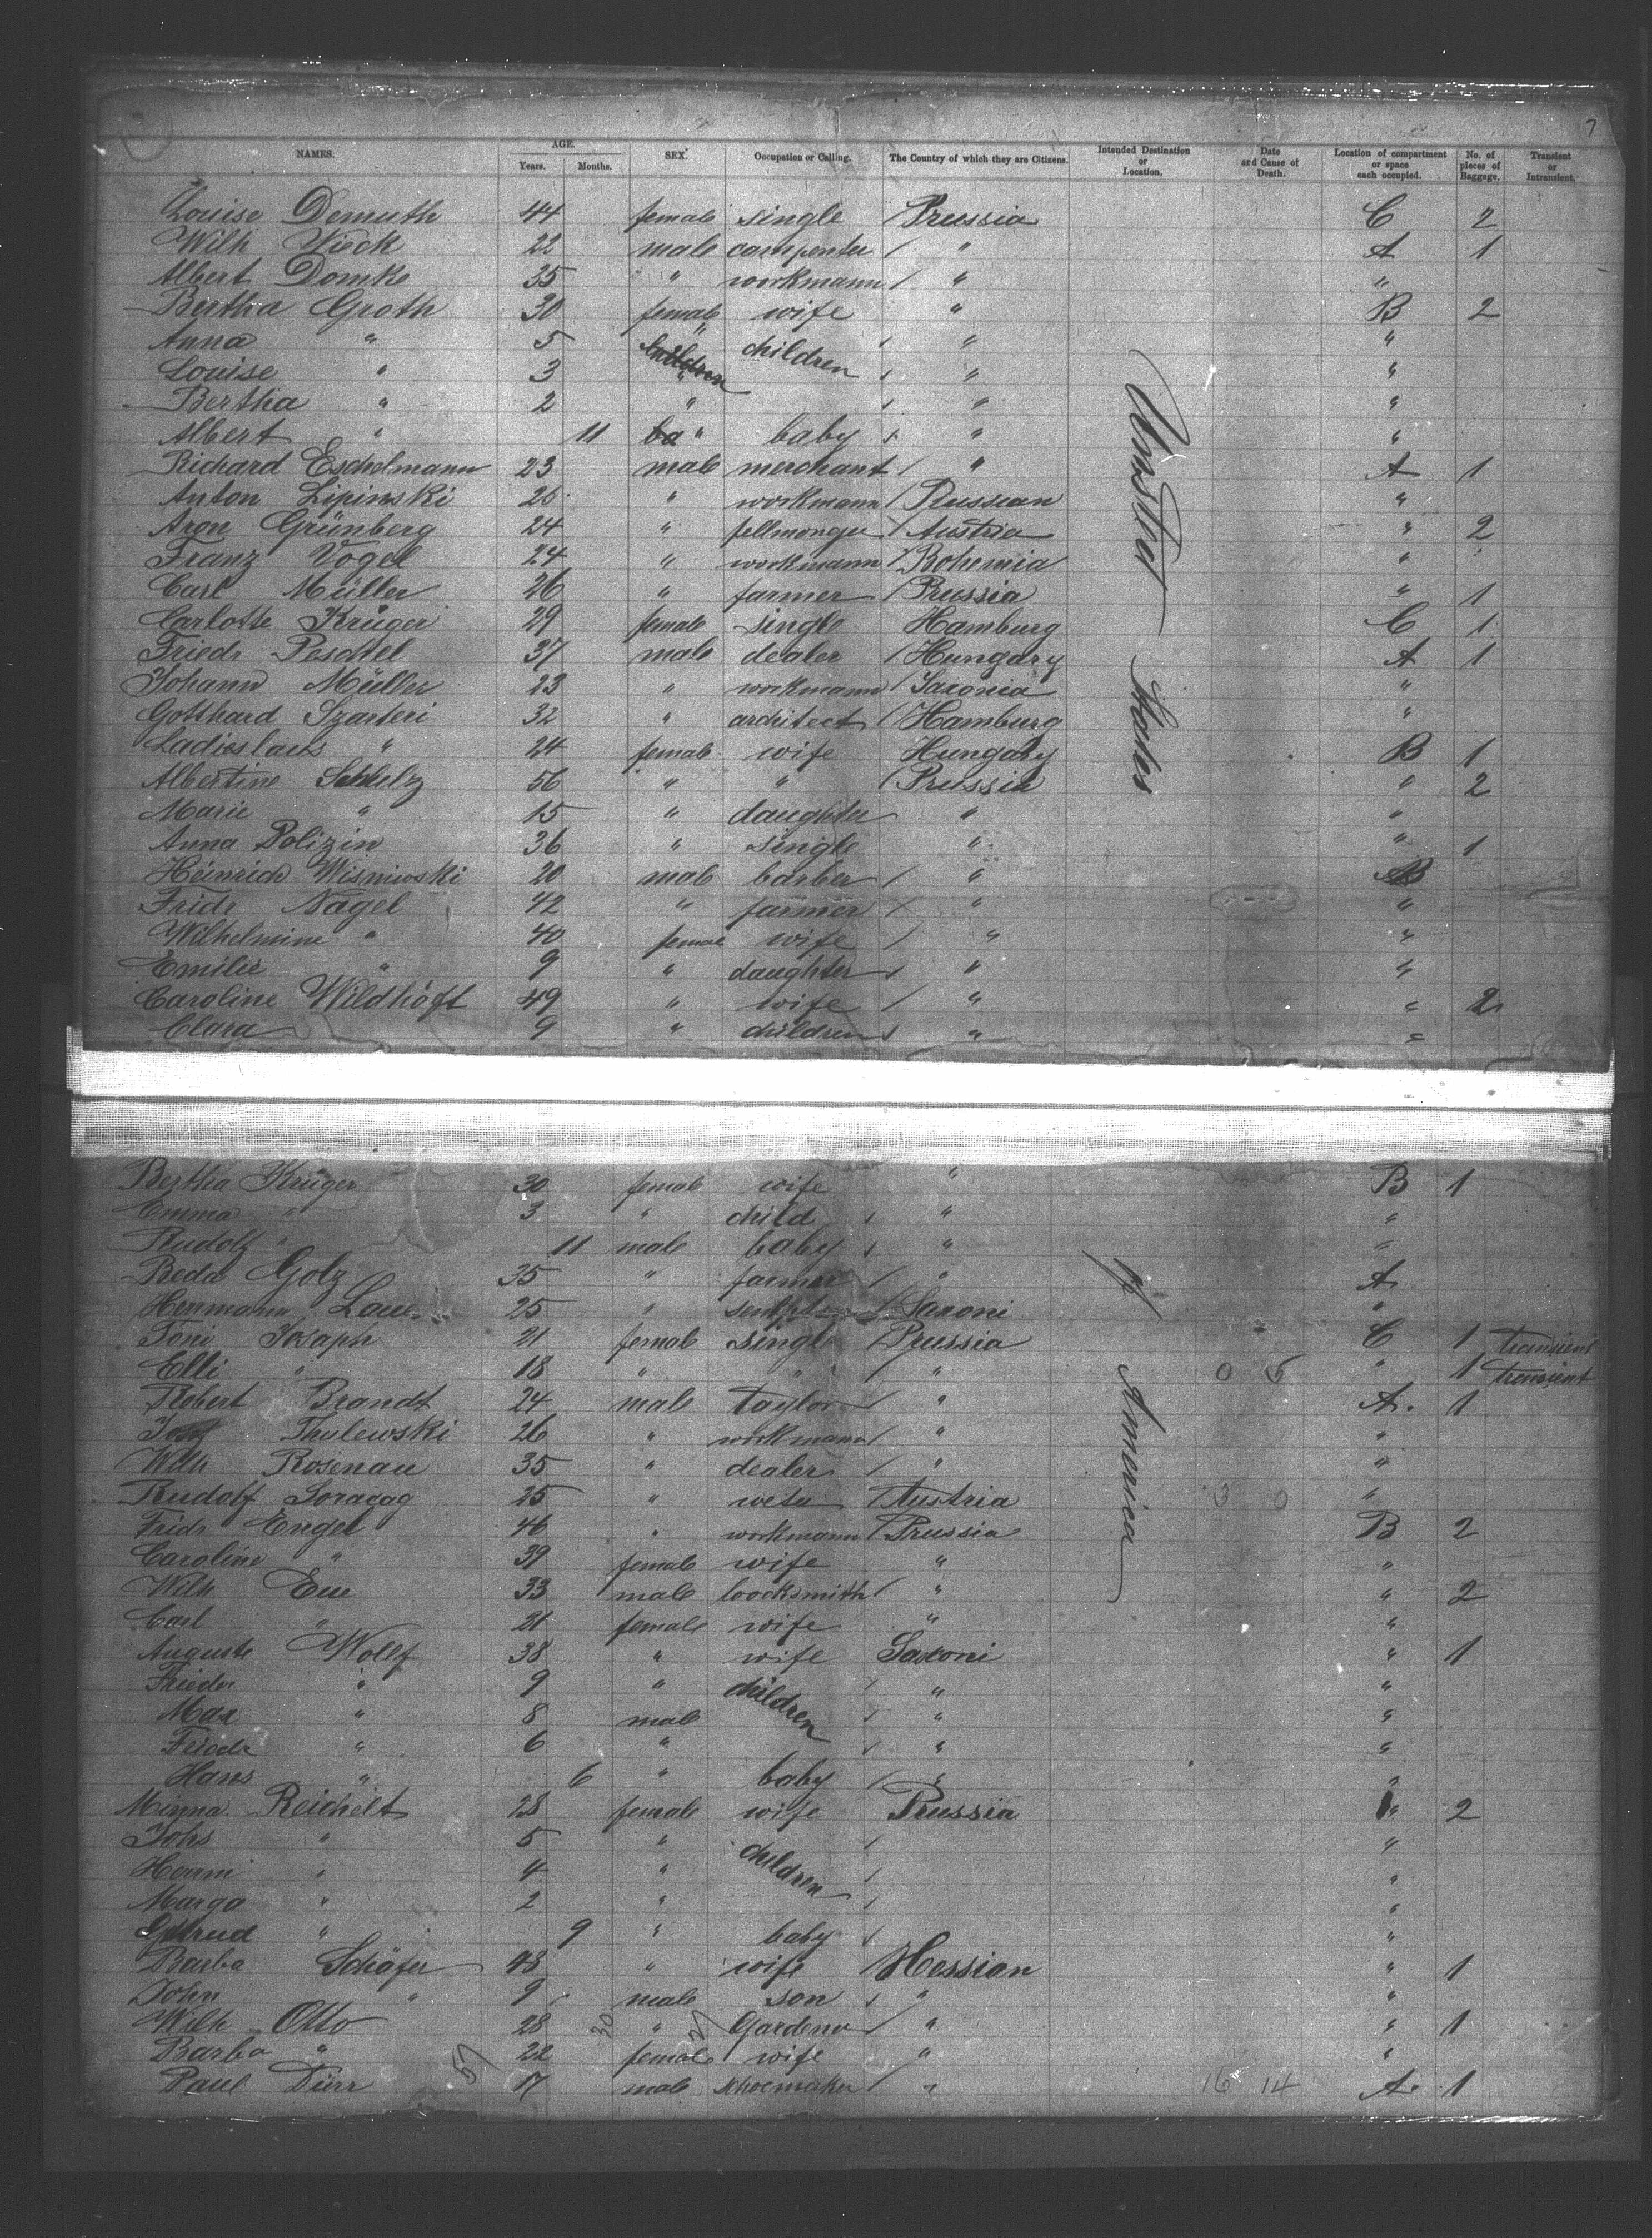 7
NAMES. AGE. Years. Months. SEX. Occupation or Calling. The Country of which they are Citizens. Intended Destination or Location. Date and Cause of Death. Location of compartment or space each occupied. No. of pieces of Baggage. Transient or Intransient.
Louise Demuth 44 female single Prussia C 2
Wilh 22 male carpenter / " A 1
Albert Domke 35 " workmann / " "
Bertha Groth 30 female wife " B 2
Anna " 5 " children " "
Louise " 3 " " "
Bertha " 2 " " "
Albert " 11 " baby " "
Richard Eschelmann 23 male merchant / " A 1
Anton Lipinski " workmann / Russian "
Aron Grünberg 24 " fellmonger / Austria " 2
Franz Vogel 24 " workmann / Bohemia "
Carl Müller 26 " farmer / Prussia " 1
Carlotte Krüger 29 female single Hamburg C 1
Friedr Peschel 37 male dealer / Hungary A 1
Johann Müller 23 " workmann / Saxonia "
Gotthard 32 " architect / Hamburg "
" 24 female wife Hungary B 1
Albertine Schulz 56 " " Prussia " 2
Marie " 15 " daughter " "
Anna Polizin 36 " single " " 1
Heinrich Wisniwski 20 male barber / " B
Fridr Nagel 42 " farmer / " "
Wilhelmine " 40 female wife / " "
Emilie " 9 " daughter " "
Caroline Wildhöft 49 " wife / " " 2
Clara 9 " children " "
United States
Bertha Krüger 30 female wife " B 1
Emma " 3 " child " "
Rudolf " 11 male baby " "
Beda Golz 35 " farmer / " A
Herrmann Laue 25 " / Saxoni "
Toni Josaph 21 female single Prussia C 1 transient
Elli " 18 " " " 0 5 " 1 transient
Robert Brandt 24 male taylor / " A. 1
Thulewski 26 " workmann / " "
Wilh Rosenau 35 " dealer / " "
Rudolf 25 " / Austria 3 0 "
Fridr Engel 46 " workmann / Prussia B 2
Caroline " 39 female wife " "
Wilh Eue 33 male loocksmith / " " 2
Carl " 21 female wife " "
Auguste Wolff 38 " wife Saxoni " 1
Frieder " 9 " children " "
Max " 8 male " "
Friedr " 6 " " "
Hans " 6 " baby / " "
Minna Reichelt 28 female wife Prussia " 2
Johs " 5 " children "
Hermi " 4 " "
Marga " 2 " "
" 9 " baby "
Barba Schäfer 48 " wife Hessian " 1
John " 9 male son " "
Wilh Otto 28 30 " Gardener / " " 1
Barba " 22 female wife " "
Paul Dürr 17 male schoemaker / " 16 14 A. 1
57
of America